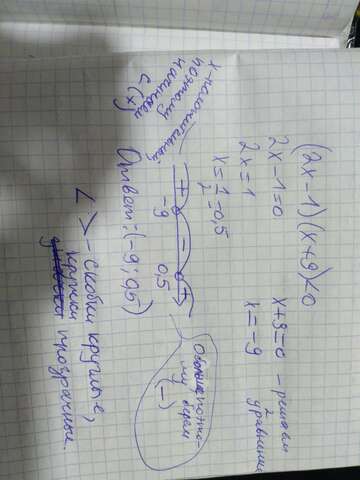 (2x-1)(x+9)<0
2x-1=0    x+9=0 - решаем
2 уравнения
2x=1    x=-9
x=1/2=0,5
x-положительный
поэтому
начинаем
с (x)
+ - +
-9 0,5
Ответ: (-9; 0,5)
поэто-
му берём
(-)
< > - скобки круглые,
кружки
прозрачные.